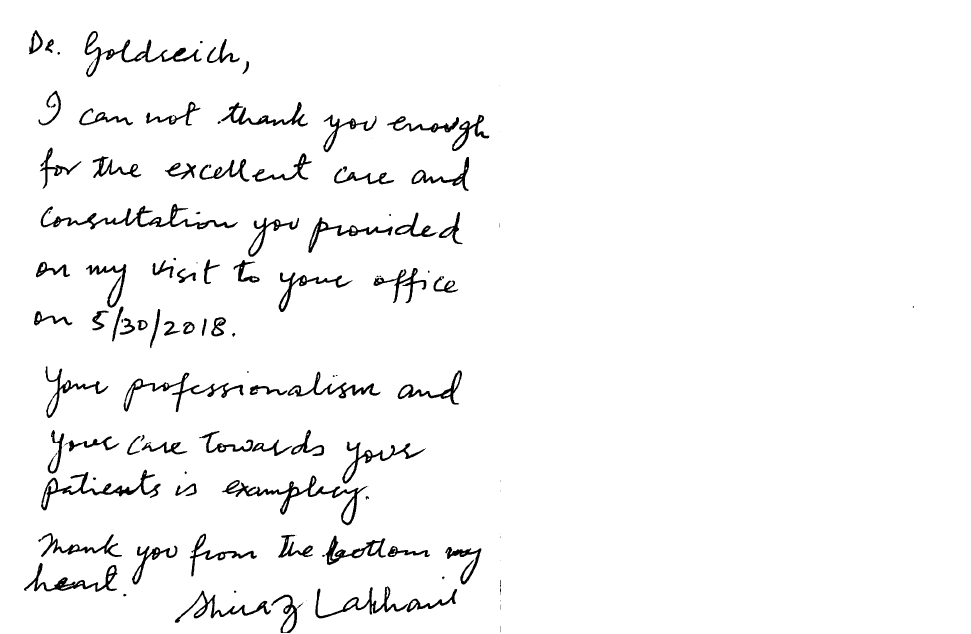 Dr. Goldreich,
I can not thank you enough
for the excellent care and
Consultation you provided
on my visit to your office
on 5/30/2018.
Your professionalism and
your care towards your
patients is examplary.
Thank you from the bottom my
heart.
Shiraz Lakhani